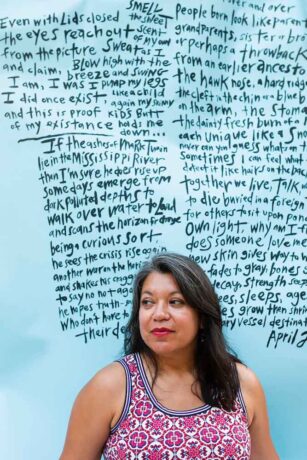 Even with Lids closed
the eyes reach out
from the picture
and claim,
I am, I was
I did once exist
and this is proof
of my existance
SMELL
the sweet
scent
of my own
Sweat as I
Blow high with the
breeze and swing
I pump my legs
like a child
again my skinny
kid's butt
holds me
down...
If the ashes of Mark Twain
lie in the Mississippi River
then I'm sure he does rise up
some days emerge from
dark polluted depths to
walk over water to land
and scans the horizon for change
being a curious sort
he sees the crisis rise again
another war on the
and shakes his
to say no not aga
he hopes truth
who don't have t
their de
over and over
People born look like paren
grandparents, sister or bro
or perhaps a throwback
from an earlier ances
the hawk nose, a hard ridg
the cleft in the chin or blue
on the arm, the stom
the dairy fresh
each unique like a s
never can
Sometimes I can feel what
detect it like hairs on the back
together we live. Talk
to die buried in a foreign
for others to sit upon
Own light, why am I
does someone love me
new skin gives way to w
fades to gray bones
decay, strength sap
ess, sleeps, age
es grow then shrin
ary vessel destinat
April 2